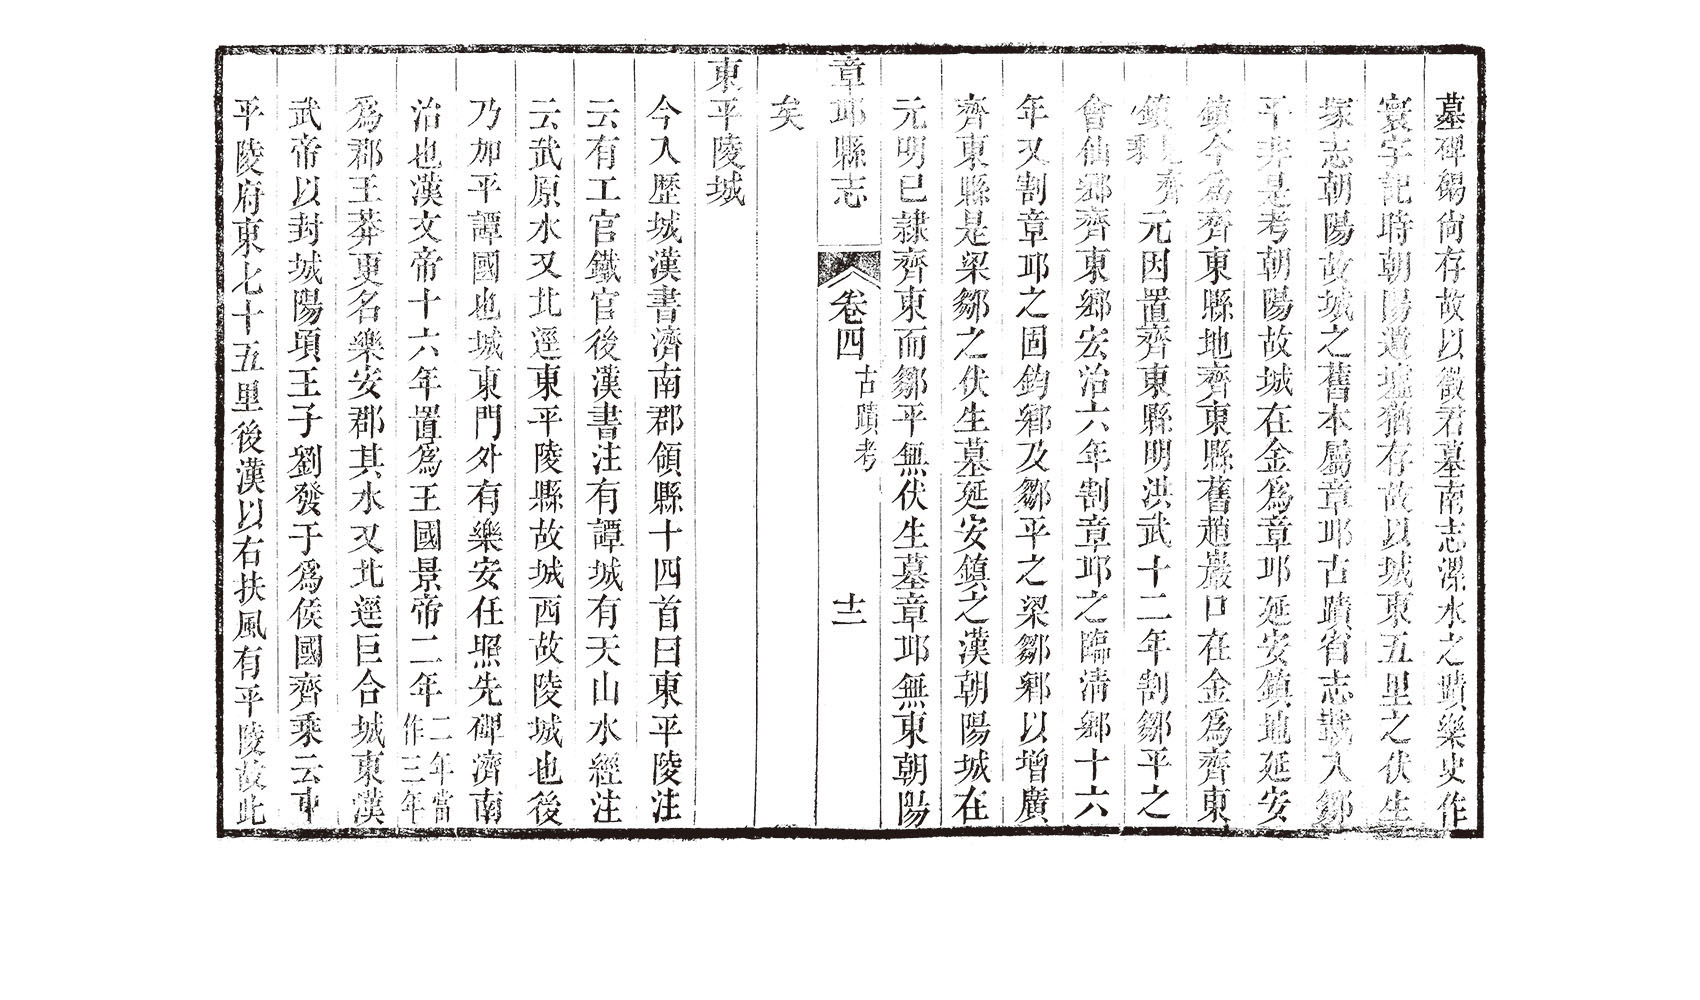 墓碑碣尙存故以徵君墓南志漯水之蹟樂史作
寰宇記時朝陽遺墟猶存故以城東五里之伏生
塚志朝陽故城之舊本屬章邱古蹟省志載入鄒
平非是考朝陽故城在金爲章邱延安鎭地延安
鎭今爲齊東縣地齊東縣舊趙巖口在金爲齊東
鎭見齊乘元因置齊東縣明洪武十二年割鄒平之
會仙鄉齊東鄉宏治六年割章邱之臨淸鄉十六
年又割章邱之固鈞鄉及鄒平之梁鄒鄉以增廣
齊東縣是梁鄒之伏生墓延安鎭之漢朝陽城在
元明已隷齊東而鄒平無伏生墓章邱無東朝陽
章邱縣志 卷四 古蹟考 十二
矣
東平陵城
今入歷城漢書濟南郡領縣十四首曰東平陵注
云有工官鐵官後漢書注有譚城有天山水經注
云武原水又北逕東平陵縣故城西故陵城也後
乃加平譚國也城東門外有樂安任照先碑濟南
治也漢文帝十六年置爲王國景帝二年二年當作三年
爲郡王莽更名樂安郡其水又北逕巨合城東漢
武帝以封城陽頃王子劉發于爲侯國齊乘云東
平陵府東七十五里後漢以右扶風有平陵故此